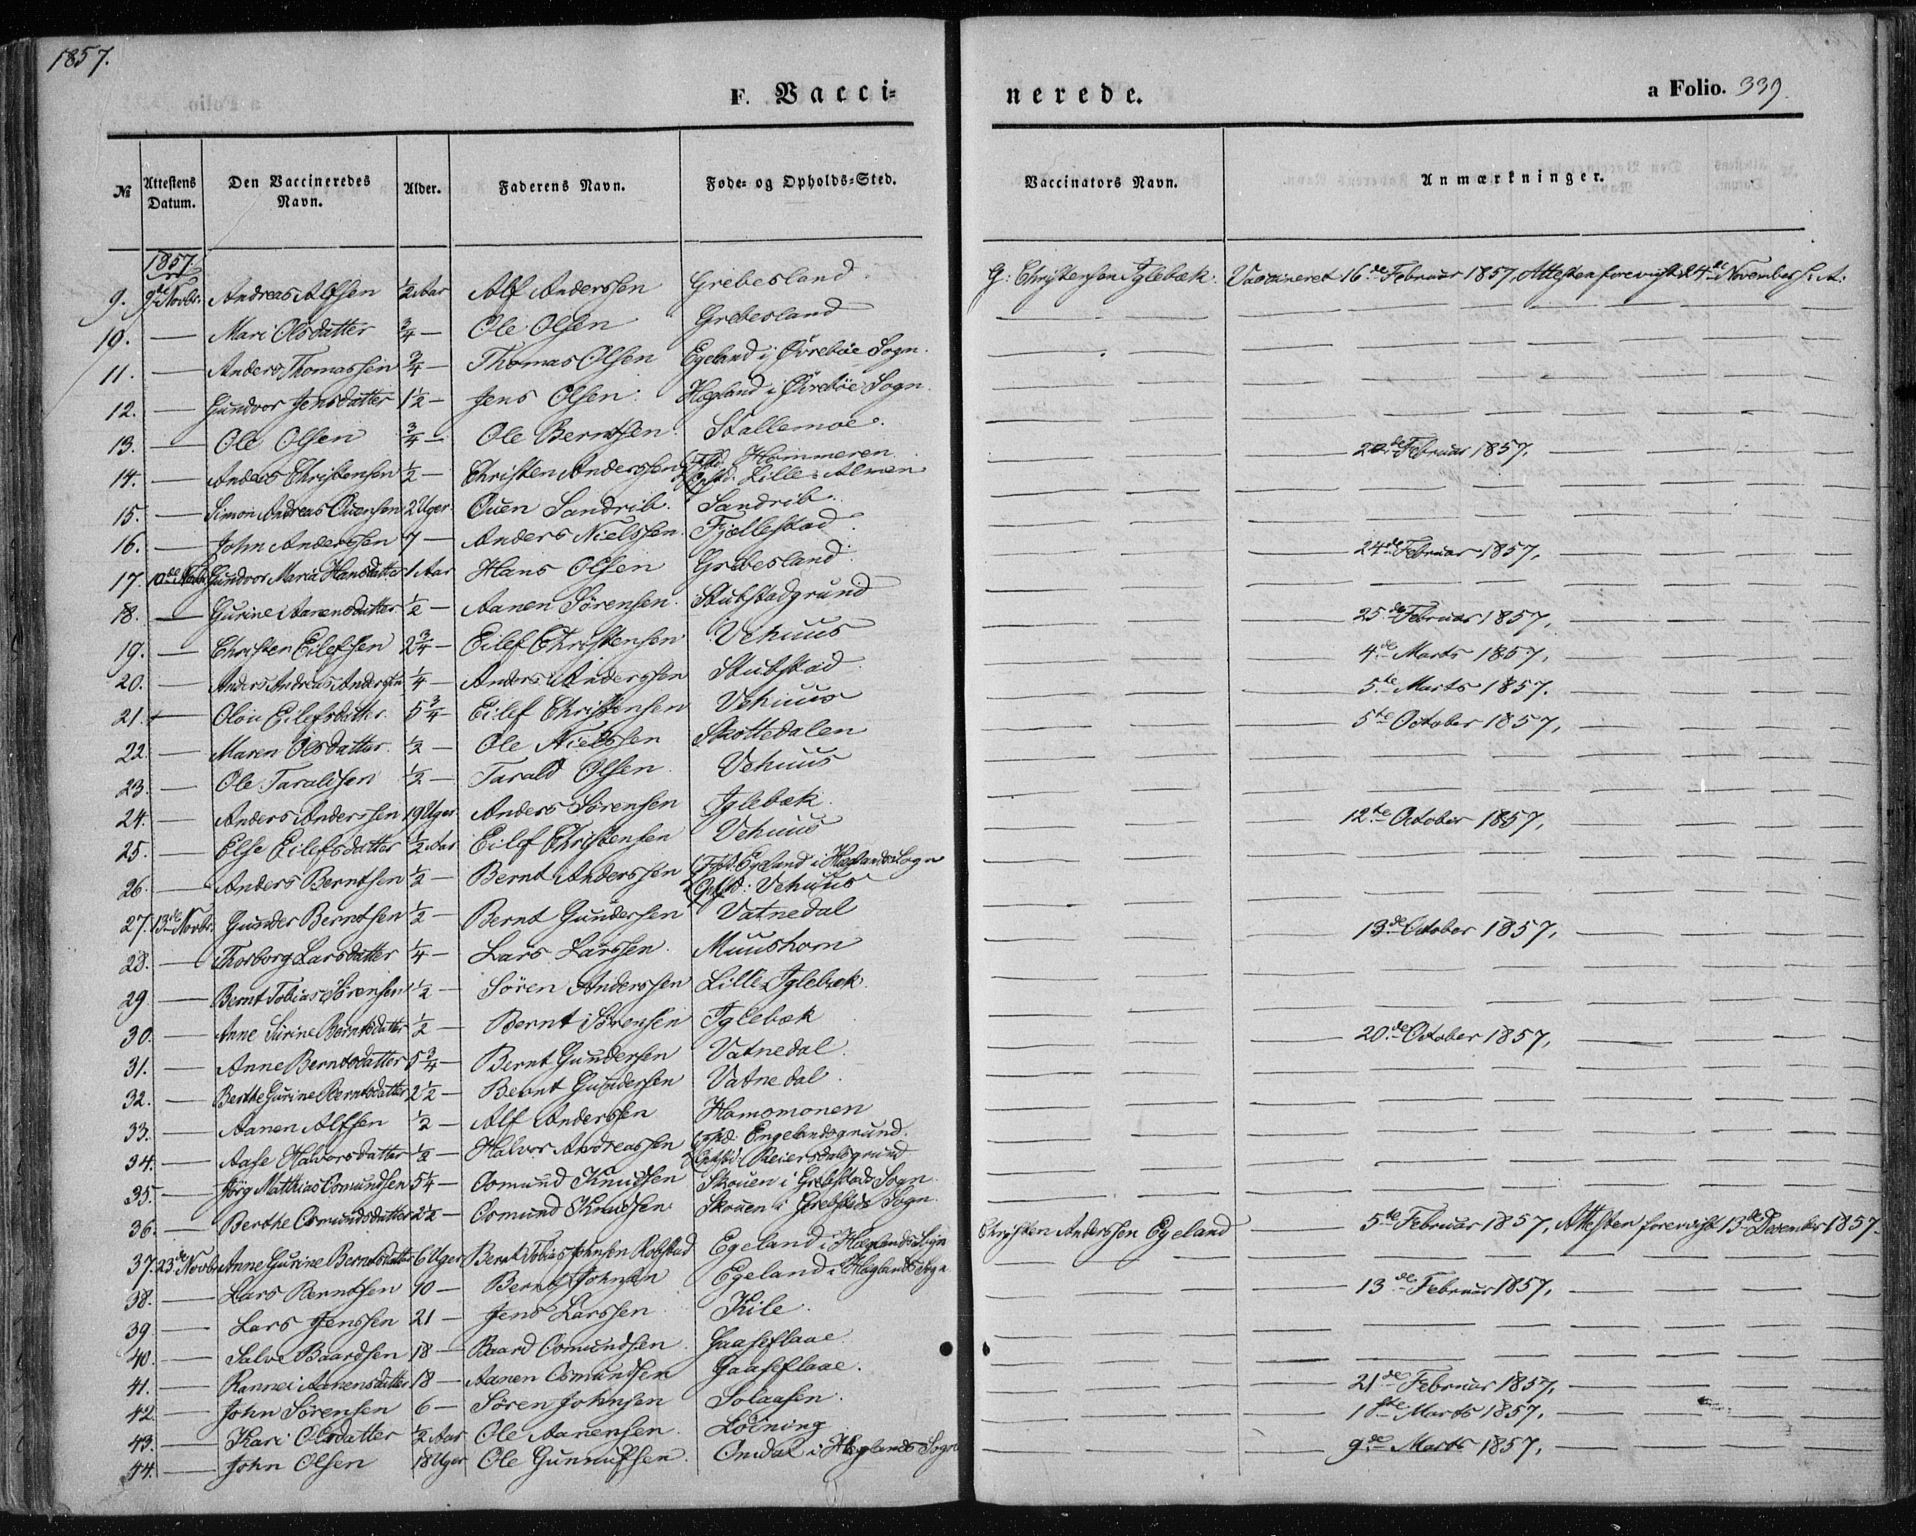 1857.
F. Vacci-
nerede.
a Folio. 339.
№ Attestens Datum. Den Vaccineredes Navn. Alder. Faderens Navn. Føde- og Opholds-Sted. Vaccinators Navn. Anmærkninger.
1857
9. 9de Novbr. Andreas Alfsen ½ Aar Alf Anderssen Grebesland. G: Christensen Iglebæk. Vaccineret 16de Februar 1857, Attesten forevist 24de November s. A.
10. — Mari Olsdatter ¾ — Ole Olsen Grebesland
11. — Anders Thomassen ¾ — Thomas Olsen Egeland i Øvrebøe Sogn.
12. — Gundvor Jensdatter 1½ — Jens Olsen Hægland i Øvrebøe Sogn.
13. — Ole Olsen ¾ — Ole Berntsen Stallemoe.
14. — Anders Christensen ½ — Christen Anderssen Fsd. Hommeren Opsd. Lille Almen — Februar 1857.
15. — Simon Andreas Ouensen 2 Uger Ouen Sandrib. Sandrib.
16. — John Anderssen 7 — Anders Nielssen Fjellestad.
17. 10de Novbr. Gundvor Maria Hansdatter 1 Aar Hans Olsen Grebesland. — 24de Februar 1857.
18. — Gurine Aanensdatter ½ — Aanen Sørensen. Stubstadgrund
19. — Christen Eilefsen 2¾ — Eilef Christensen Vehuus — 25de Februar 1857.
20. — Anders Andreas Anderssen ¼ — Anders Anderssen Stubstad — 4de Marts 1857.
21. — Olou Eilefsdatter. 5¾ — Eilef Christensen Vehuus — 5te Marts 1857.
22. — Maren Olsdatter ½ — Ole Nielssen Skottedalen — 5te October 1857.
23. — Ole Taraldsen ½ — Tarald Olsen Vehuus
24. — Anders Anderssen 19 Uger Anders Sørensen Iglebæk.
25. — Else Eilefsdatter ½ Aar Eilef Christensen Vehuus — 12te October 1857.
26. — Anders Berntsen ½ — Bernt Anderssen Fsd. Egeland i Hæglands Sogn Opsd: Vehuus
27. 13de Novbr. Gunder Berntsen ½ — Bernt Gundersen Vatnedal
28. — Thorborg Larsdatter ¼ — Lars Larssen Muushom — 13de October 1857.
29 — Bernt Tobias Sørensen ½ — Søren Anderssen Lille Iglebæk.
30. — Anne Sirine Berntsdatter ½ — Bernt Sørensen Iglebæk
31. — Anne Berntsdatter 5¾ — Bernt Gundersen Vatnedal. — 20de October 1857.
32. — Berthe Gurine Berntsdatter 2½ — Bernt Gundersen Vatnedal.
33. — Aanen Alfsen ½ — Alf Anderssen Homsmonen
34. — Aase Halvorsdatter ½ — Halvor Andreassen Fsd: Engelandsgrund. Opsd: Reiersdalsgrund
35. — Jörg Matthias Osmundsen 5¼ — Osmund Knudsen Skouen i Grebstads Sogn
36. — Berthe Osmundsdatter 2½ — Osmund Knudsen Skouen i Grebstads Sogn.
37. 23de Novbr. Anne Gurine Berntsdatter 6 Uger Bernt Tobias Johnsen Robstad Egeland i Hæglands Sogn Christen Anderssen Egeland — 5te Februar 1857, Attesten forevist 13de December 1857.
38. — Lars Berntsen 10 — Bernt Johnsen Egeland i Hæglands Sogn
39 — Lars Jenssen 21 — Jens Larssen Kile. — 13de Februar 1857.
40. — Salve Baardsen 18 — Baard Osmundsen Gaaseflaae.
41. — Rannei Aanensdatter 18 — Aanen Osmundsen Gaaseflaae.
42. — John Sørensen 6 — Søren Johnsen Solaasen. — 21de Februar 1857.
43. — Kari Olsdatter ½ Aar Ole Aanensen Løining — 1ste Marts 1857.
44. — John Olsen 18 Uger Ole Gunnufsen. Omdal i Hæglands Sogn — 9de Marts 1857.